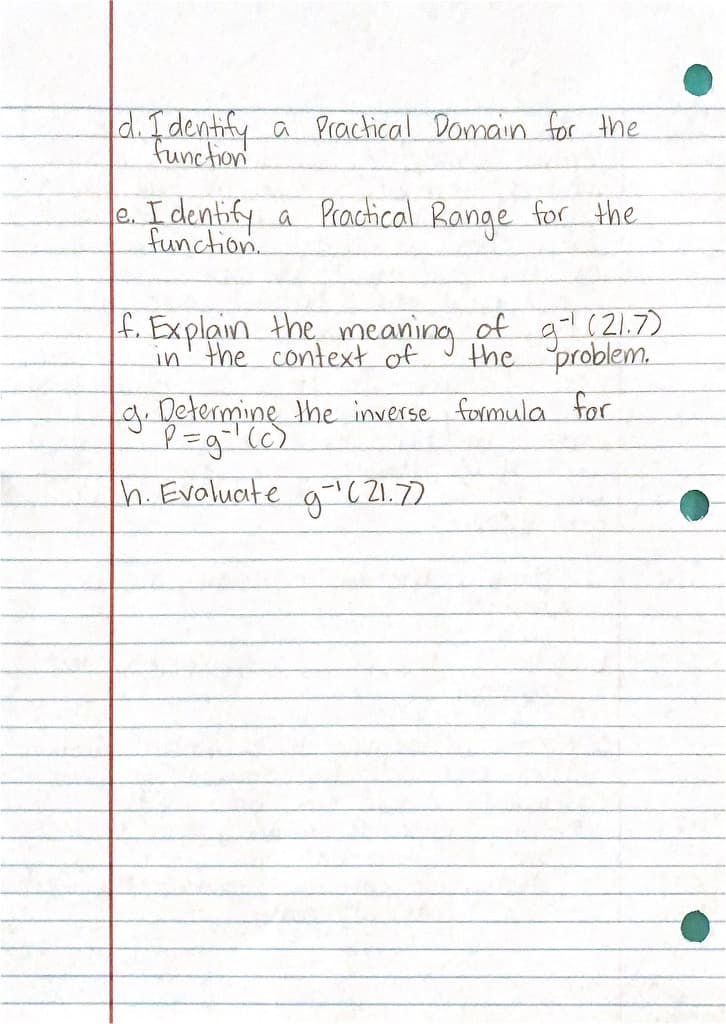 d. Identify a Practical Domain for the
function
e. Identify a Practical Range for the
function.
f. Explain the meaning of g⁻¹(21.7)
in the context of the problem.
g. Determine the inverse formula for
P=g⁻¹(c)
h. Evaluate g⁻¹(21.7)